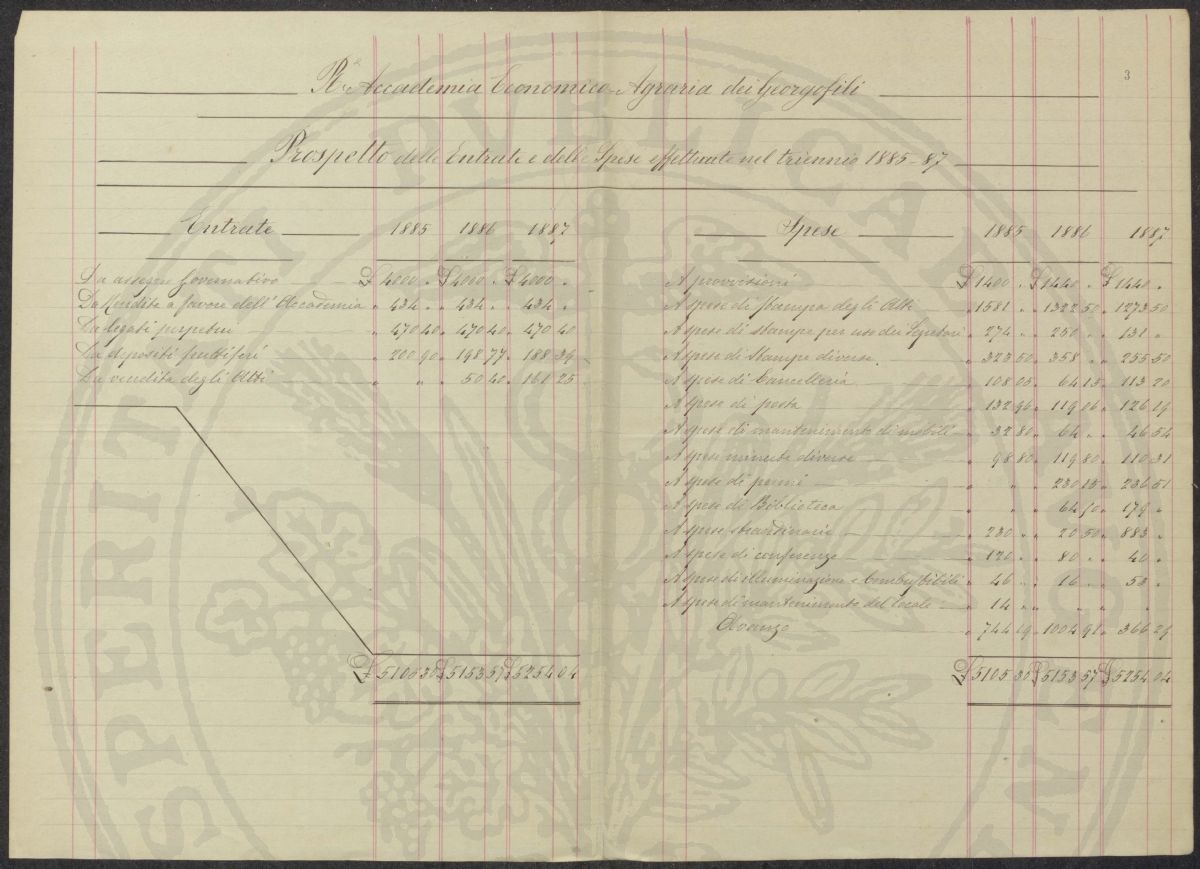 3
Rª Accademia Economico-Agraria dei Georgofili
Prospetto delle Entrate e delle Spese effettuate nel triennio 1885-87
Entrate 1885 1886 1887
Da assegno Governativo £ 4000 „ £ 4000 „ £ 4000 „
Da Rendite a favore dell' Accademia „ 434 „ „ 434 „ „ 434 „
Da legati perpetui „ 470 40 „ 470 40 „ 470 40
Da depositi fruttiferi „ 200 90 „ 198 77 „ 188 39
Da vendita degli Atti „ „ „ 50 40 „ 161 25
£ 5105 30 £ 5153 57 £ 5254 04
Spese 1885 1886 1887
A provvisioni £ 1400 „ £ 1440 „ £ 1440 „
A spese di stampa degli Atti „ 1581 „ „ 1322 50 „ 1273 50
A spese di stampe per uso dei Segretari „ 274 „ „ 250 „ „ 131 „
A spese di Stampe diverse „ 323 50 „ 358 „ „ 255 50
A spese di Cancelleria „ 108 05 „ 64 15 „ 113 20
A spese di posta „ 132 96 „ 119 06 „ 126 19
A spese di mantenimento di mobili „ 32 80 „ 64 „ „ 46 54
A spese minute diverse „ 98 80 „ 119 80 „ 110 31
A spese di premi „ „ „ 230 15 „ 236 51
A spese di Biblioteca „ „ „ 64 50 „ 179 „
A spese straordinarie „ 230 „ „ 20 50 „ 883 „
A spese di conferenze „ 120 „ „ 80 „ „ 40 „
A spese di illuminazione e Combustibili „ 46 „ „ 16 „ „ 53 „
A spese di mantenimento del locale „ 14 „ „ „ „ „
Avanzo „ 744 19 „ 1004 91 „ 366 29
£ 5105 30 £ 5153 57 £ 5254 04